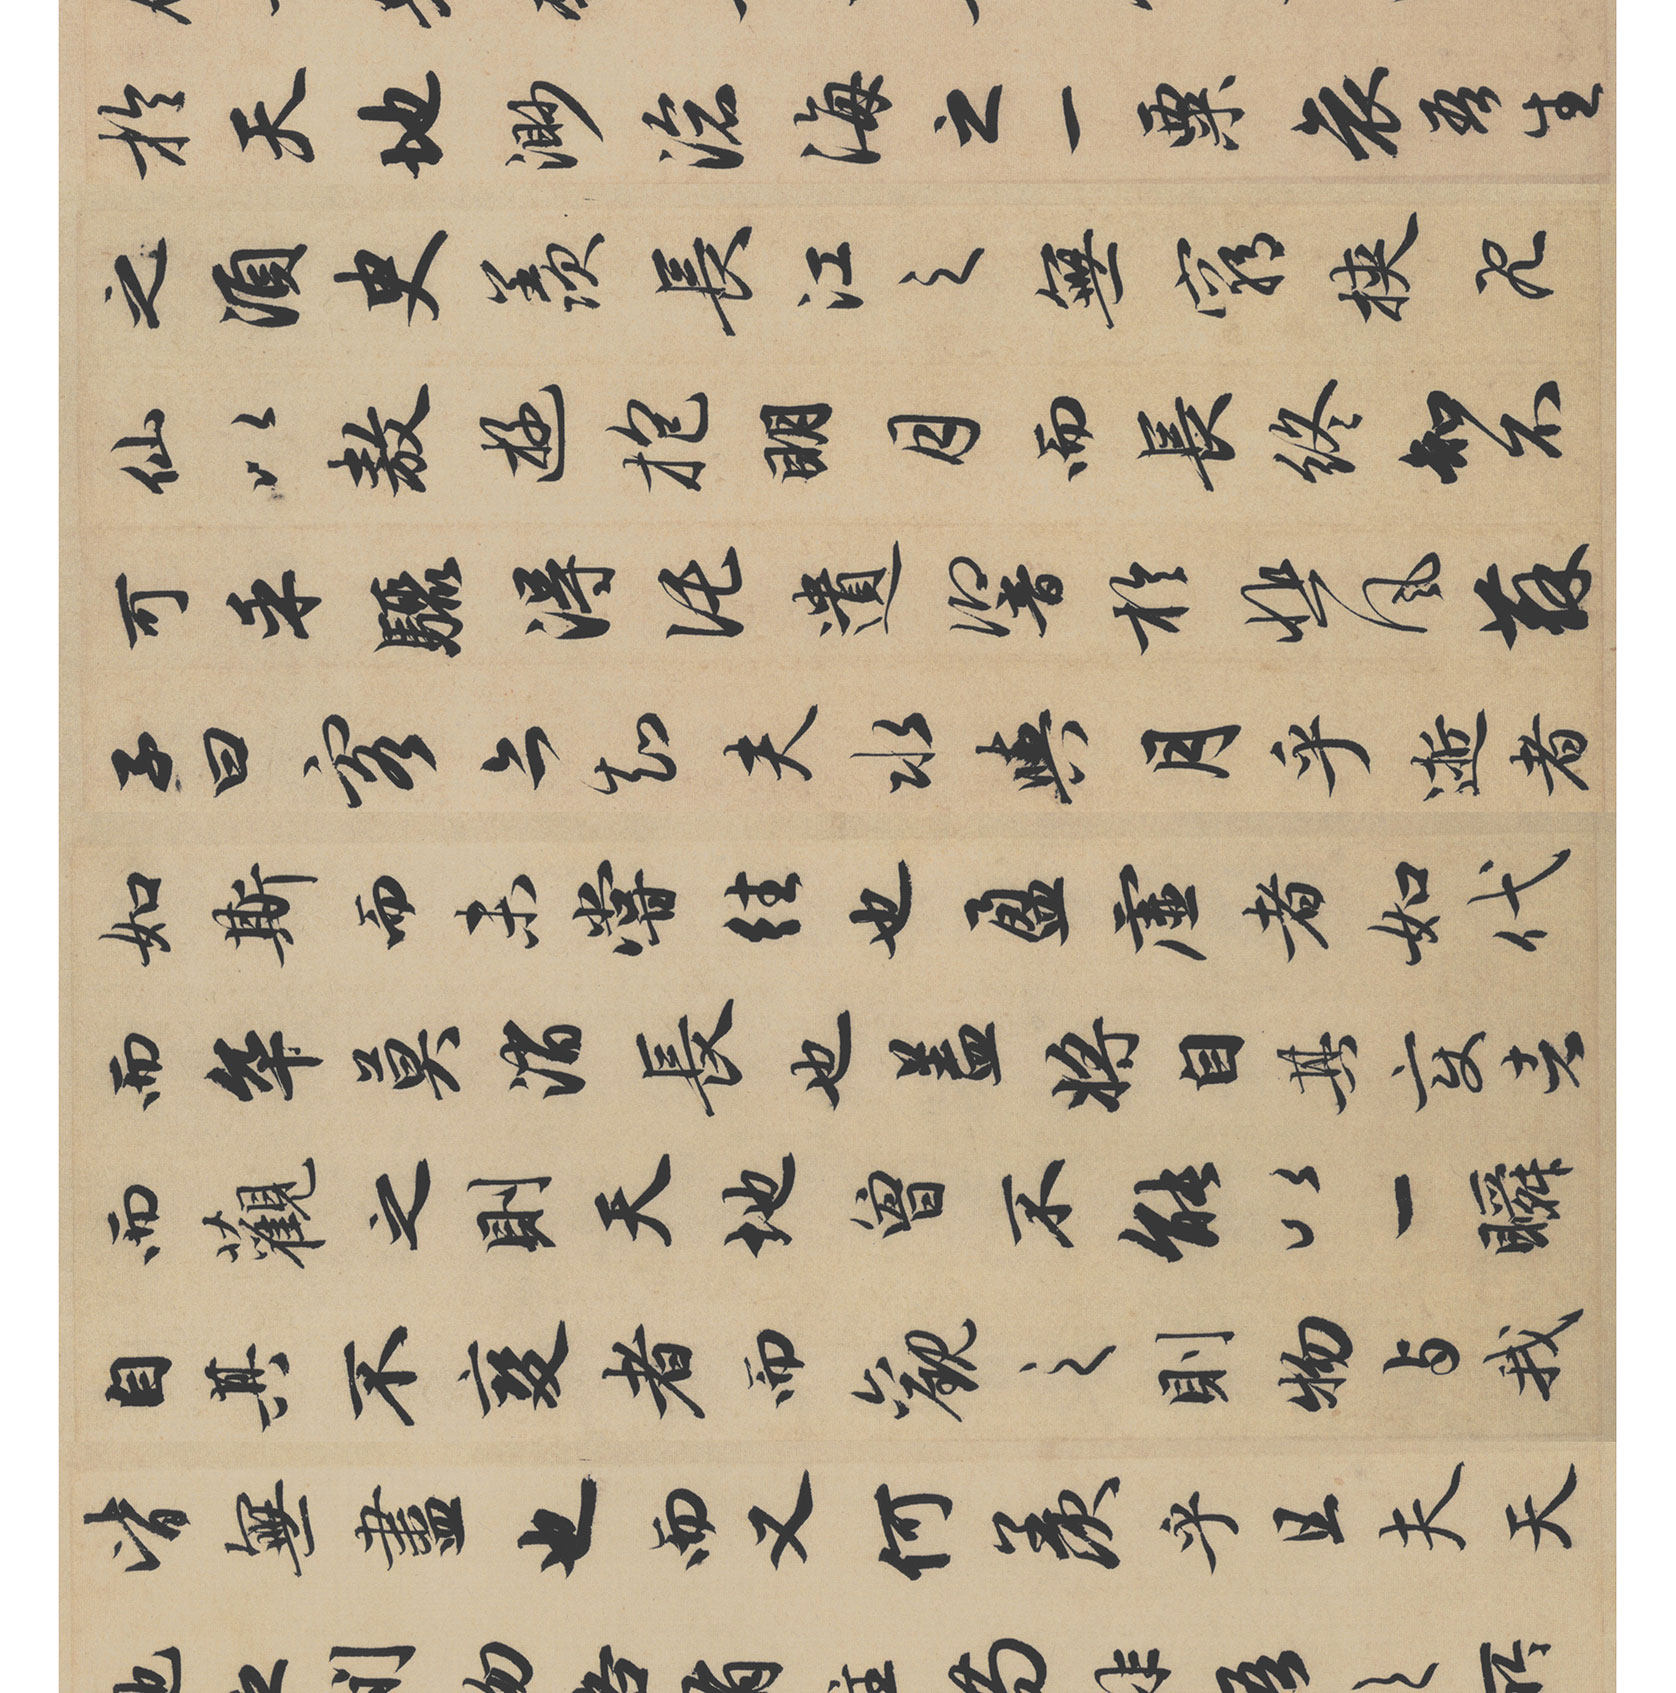 於天地渺滄海之一粟哀吾生
之須臾羨長江之無窮挾飛
仙以敖遊抱明月而長終知不
可乎驟得託遺響於悲風蘇
子曰客亦知夫水與月乎逝者
如斯而未嘗往也盈虛者如代
而卒莫消長也蓋將自其變者
而觀之則天地曾不能以一瞬
自其不變者而觀之則物与我
皆無盡也而又何羨乎且夫天